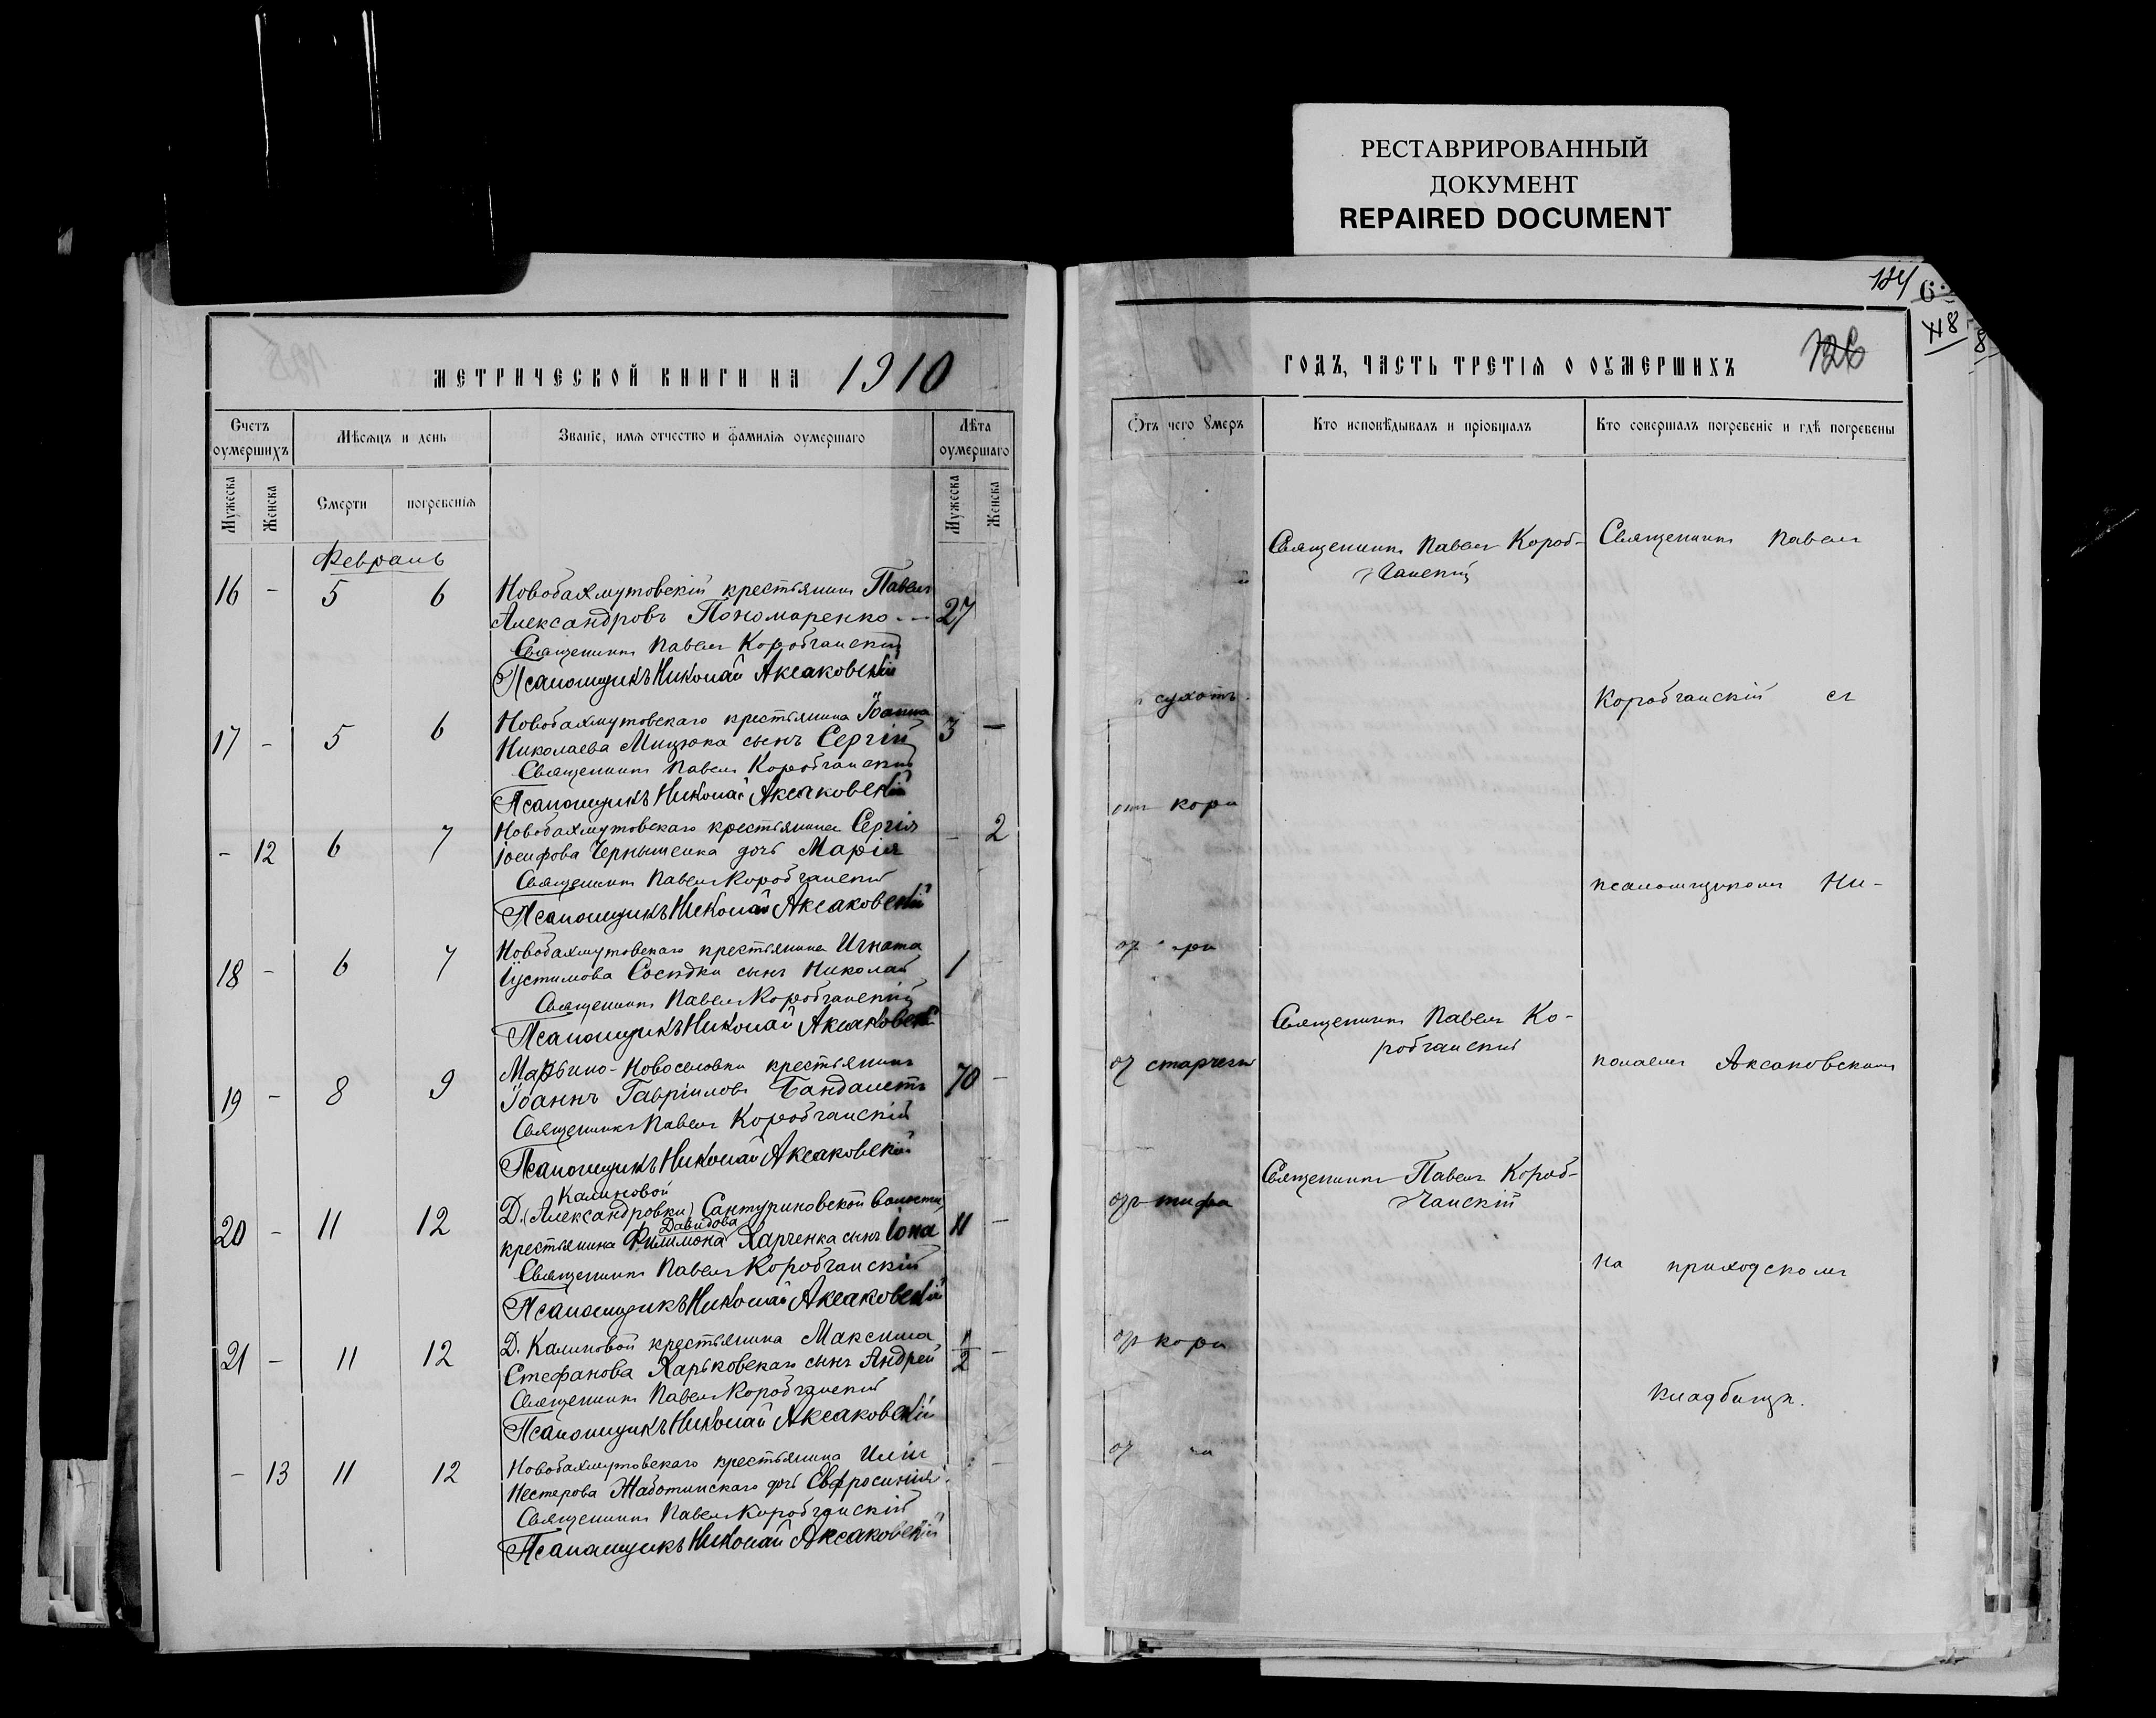 РЕСТАВРИРОВАННЫЙ
ДОКУМЕНТ
REPAIRED DOCUMENT
МЕТРИЧЕСКОЙ КНИГИ НА 1910
Счетъ оумершихъ
Мѣсяцъ и день
Званіе, имя отчество и фамилія оумершаго
Лѣта оумершаго
Мужеска
Женска
Смерти
погребенія
Мужеска
Женска
Февраль
16 - 5 6 Новобахмутовскій крестьянинъ Павелъ
Александровъ Пономаренко 27
Священникъ Павелъ Коробчанскій
Псаломщикъ Николай Аксаковскій
17 - 5 6 Новобахмутовскаго крестьянина Іоанна
Николаева Мицюка сынъ Сергій 3 -
Священникъ Павелъ Коробчанскій
Псаломщикъ Николай Аксаковскій
- 12 6 7 Новобахмутовскаго крестьянина Сергія
Іосифова Чернышенка дочь Марія - 2
Священникъ Павелъ Коробчанскій
Псаломщикъ Николай Аксаковскій
18 - 6 7 Новобахмутовскаго крестьянина Игната
Іустимова Сосѣдки сынъ Николай 1
Священникъ Павелъ Коробчанскій
Псаломщикъ Николай Аксаковскій
19 - 8 9 Марьино-Новоселовки крестьянинъ
Іоаннъ Гавріиловъ Бандалетъ 70 -
Священникъ Павелъ Коробчанскій
Псаломщикъ Николай Аксаковскій
Калиновой
20 - 11 12 Д. (Александровки) Сантуриновской волости
Давидова
крестьянина Филимона Харченка сынъ Іона 11 -
Священникъ Павелъ Коробчанскій
Псаломщикъ Николай Аксаковскій
21 - 11 12 Д. Калиновой крестьянина Максима
Стефанова Харьковскаго сынъ Андрей 1/2 -
Священникъ Павелъ Коробчанскій
Псаломщикъ Николай Аксаковскій
- 13 11 12 Новобахмутовскаго крестьянина Иліи
Нестерова Жаботинскаго дочь Евфросинія
Священникъ Павелъ Коробчанскій
Псаломщикъ Николай Аксаковскій
ГОДЪ, ЧАСТЬ ТРЕТІЯ О ОУМЕРШИХЪ
Отъ чего Умеръ
Кто исповѣдывалъ и пріобщалъ
Кто совершалъ погребеніе и гдѣ погребены
Священникъ Павелъ Короб-
чанскій
Священникъ Павелъ
сухотъ
Коробчанскій съ
отъ кори
псаломщикомъ Ни-
Священникъ Павелъ Ко-
робчанскій
отъ старчест
колаемъ Аксаковскимъ
Священникъ Павелъ Короб-
чанскій
отъ тифа
на приходскомъ
отъ кори
кладбищѣ.